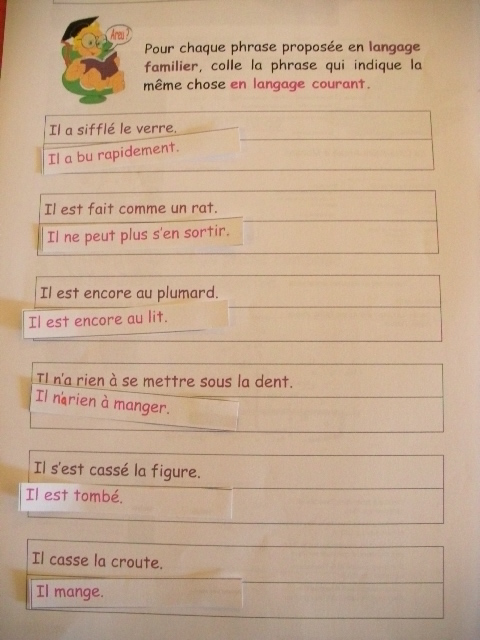 Areu ?
Pour chaque phrase proposée en langage
familier, colle la phrase qui indique la
même chose en langage courant.
Il a sifflé le verre.
Il a bu rapidement.
Il est fait comme un rat.
Il ne peut plus s'en sortir.
Il est encore au plumard.
Il est encore au lit.
Il n'a rien à se mettre sous la dent.
Il n'a rien à manger.
Il s'est cassé la figure.
Il est tombé.
Il casse la croute.
Il mange.